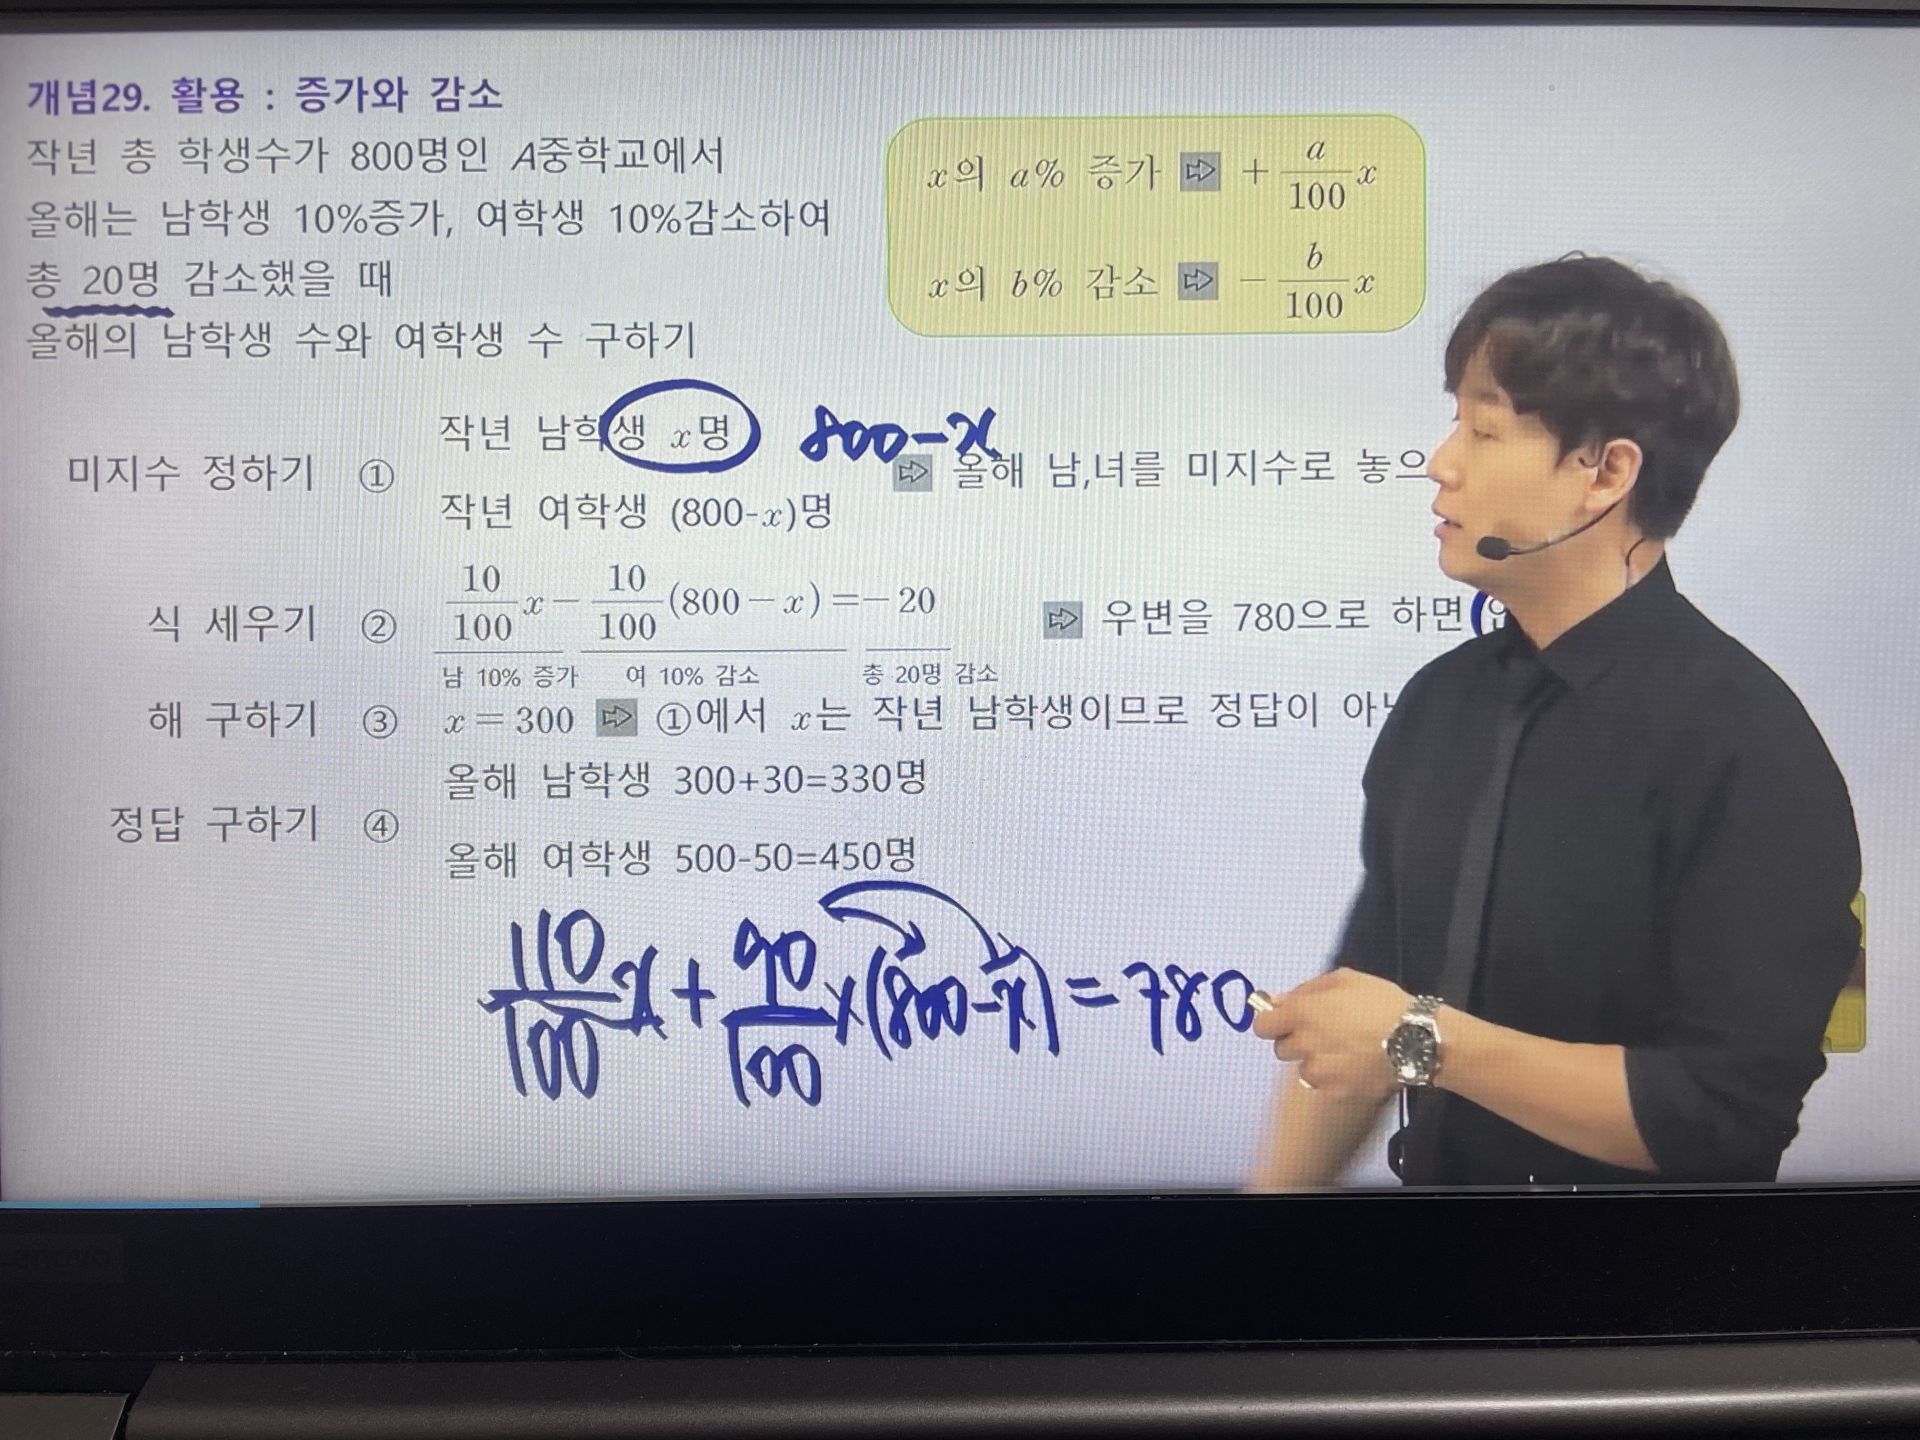 개념29. 활용 : 증가와 감소
작년 총 학생수가 800명인 A중학교에서
올해는 남학생 10%증가, 여학생 10%감소하여
총 20명 감소했을 때
올해의 남학생 수와 여학생 수 구하기
x의 a% 증가 ⇨ + a/100 x
x의 b% 감소 ⇨ − b/100 x
미지수 정하기 ①
작년 남학생 x명
800-x
작년 여학생 (800-x)명
⇨ 올해 남,녀를 미지수로 놓으
식 세우기 ②
10/100 x − 10/100 (800 − x) = − 20
남 10% 증가 여 10% 감소 총 20명 감소
⇨ 우변을 780으로 하면
해 구하기 ③
x = 300 ⇨ ①에서 x는 작년 남학생이므로 정답이
정답 구하기 ④
올해 남학생 300+30=330명
올해 여학생 500-50=450명
110/100 x + 90/100 x (800-x) = 780